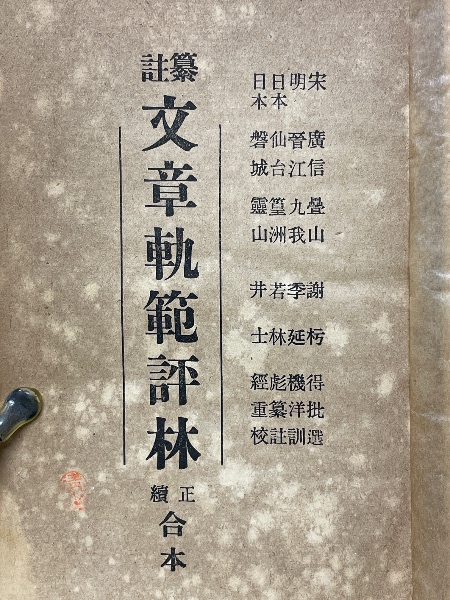 宋 廣信 疊山 謝枋得批選
明 晉江 九我 季延機洋訓
日本 仙台 篁洲 若林彪纂註
日本 磐城 靈山 井士經重校
纂註
文章軌範評林
正續
合本